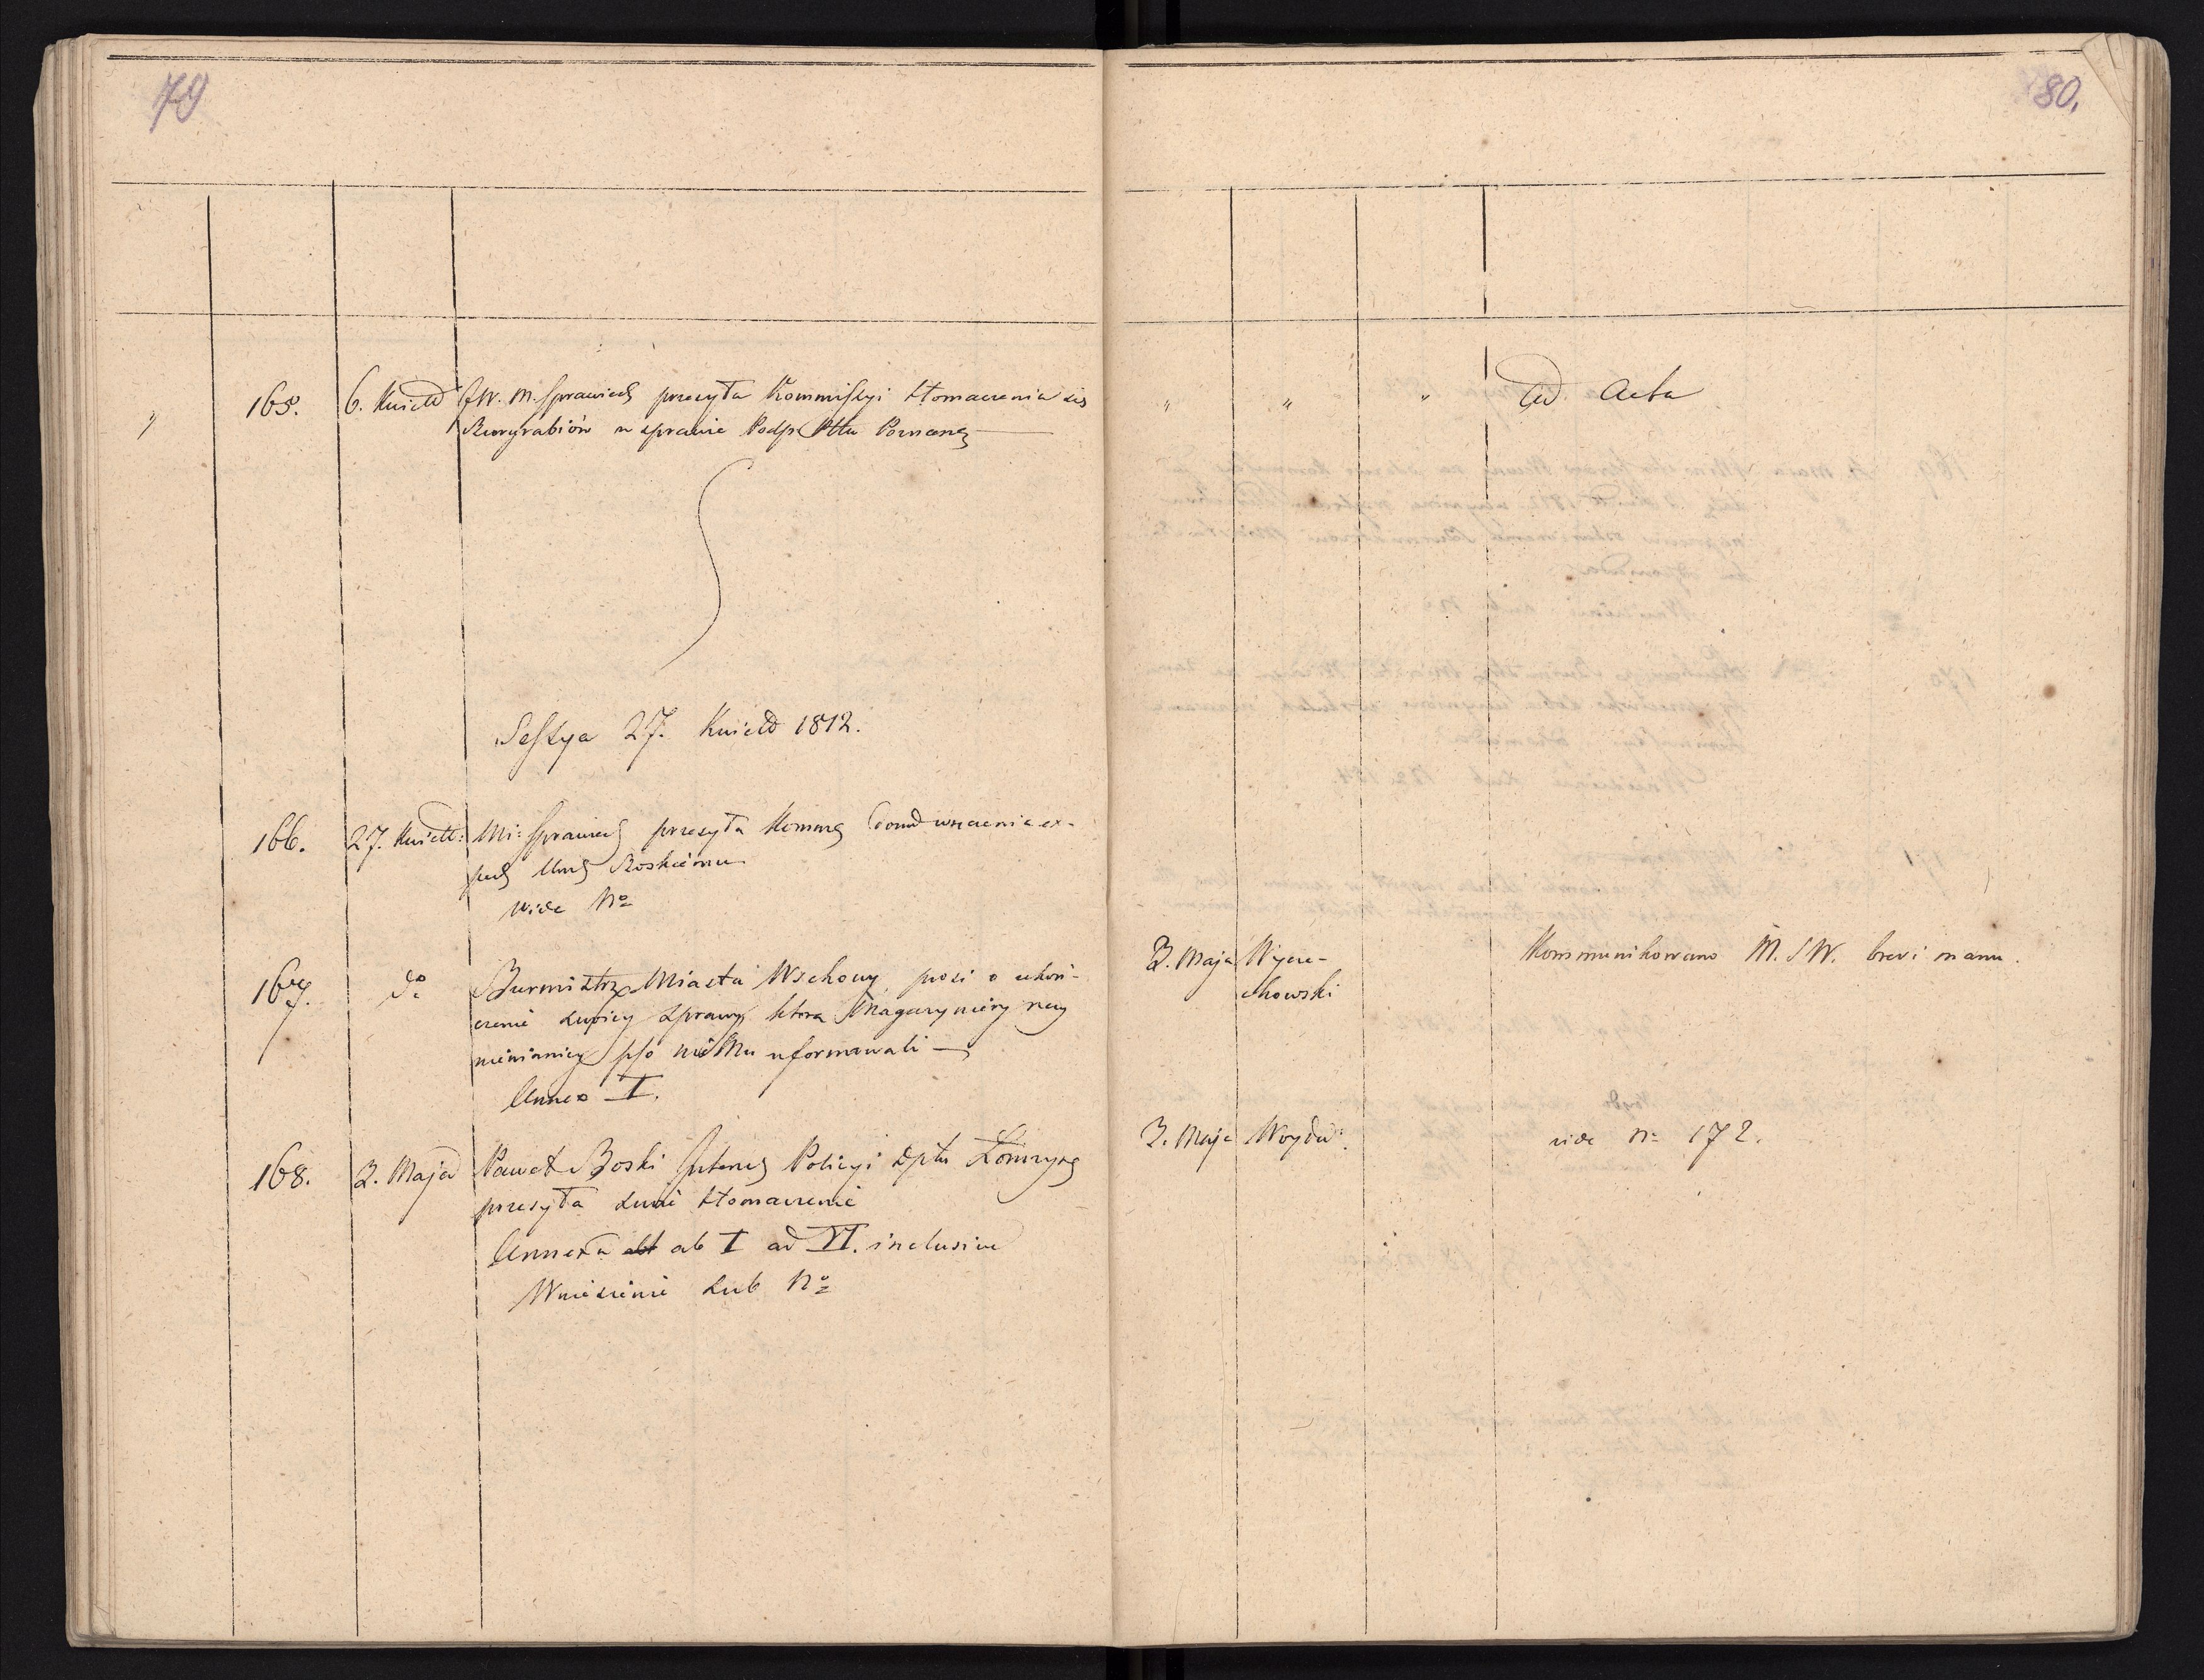 79
"
165.
6. Kwietd
JW. M. Sprawied przesyła Kommissyi tłomaczenia się
Burgrabiów w sprawie Podpr. Pttu Poznans
Sessya 27. Kwietd 1812.
166.
27. Kwiett:
Mi: Sprawied przesyła Komms Dowod wręczenia ex-
ped Boskiemu
wide No
167.
do
Burmistrz Miasta Wschowy, prosi o ukoń-
czenie swoiey sprawy, ktora Magazyniery
p/o niemu uformowali
Annex I.
168.
2. Maja
Paweł Boski Intend Policyi Dptu Łomżyns
przesyła swoie tłomaczenie
Annexa ab I ad VI. inclusive
Wniesienie sub No
80.
" " "
Ad Acta
2. Maja
Wycie-
chowski
Kommunikowano M. SW. brevi manu.
2. Maja
Woyda:
vide No 172.